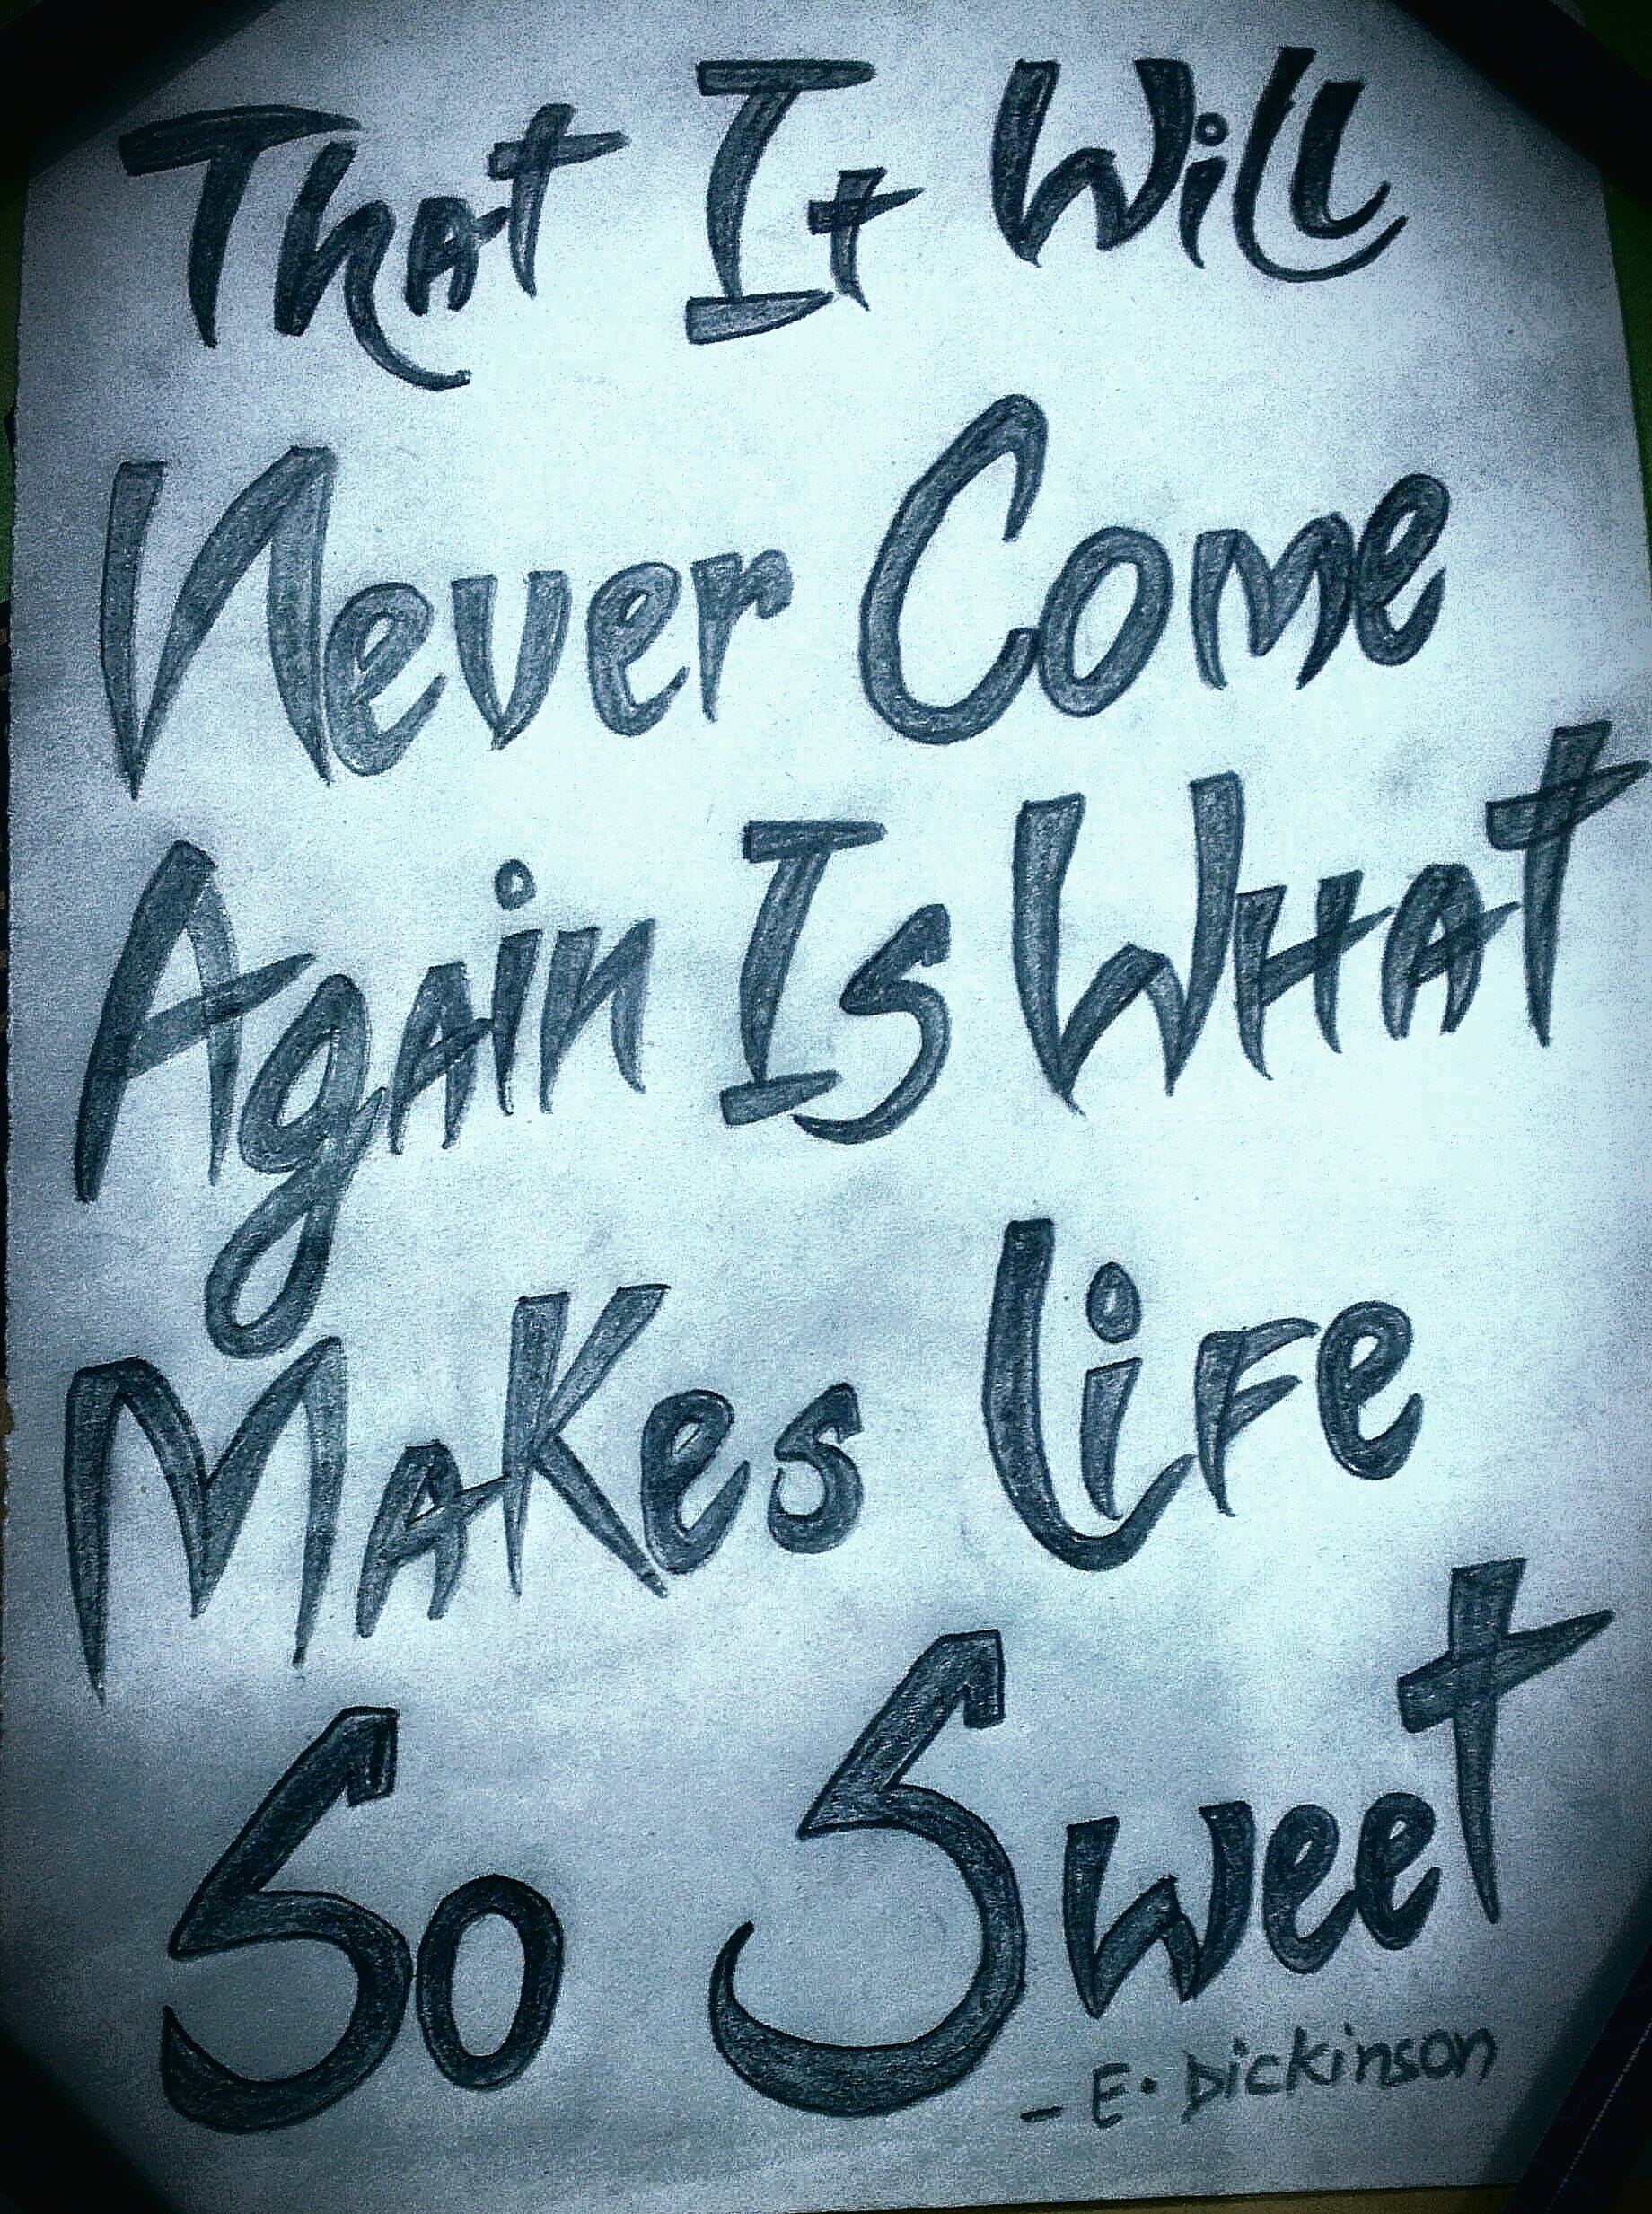 That It Will
Never Come
Again Is What
Makes Life
So Sweet
- E. Dickinson